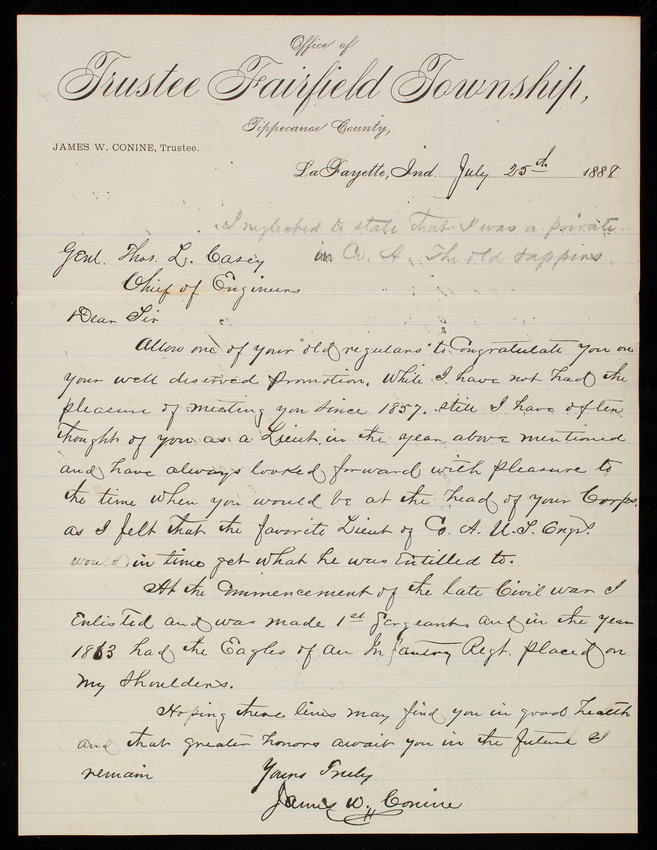 Office of
Trustee Fairfield Township,
Tippecanoe County,
JAMES W. CONINE, Trustee.
La Fayette, Ind. July 25th 1888
I neglected to state that I was a private
in Co. A. The old sappins.
Genl. Thos. L. Casey
Chief of Engineers
Dear Sir
Allow one of your "old regulars" to Congratulate you on
your well deserved promotion. While I have not had the
pleasure of meeting you since 1857. still I have often
thought of you as a Lieut. in the year above mentioned
and have always looked forward with pleasure to
the time when you would be at the head of your Corps.
as I felt that the favorite Lieut of Co. A. U.S. Engrs.
would in time get what he was Entilled to.
At the Commencement of the late Civil war I
Enlisted and was made 1st Sergeant and in the year
1863 had the Eagles of an Infantry Regt. placed on
my shoulders.
Hoping these lines may find you in good health
and that greater honors await you in the future I
remain Yours Truly
James W. Conine